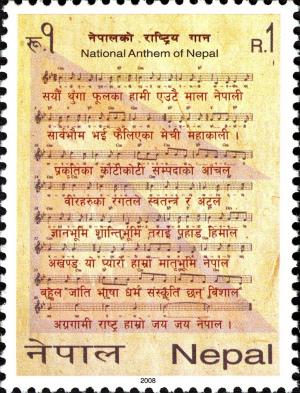 नेपालको राष्ट्रिय गान
रू १
R.1
National Anthem of Nepal
सयौं थुंगा फूलका हामी एउटै माला नेपाली
सार्वभौम भई फैलिएका मेची महाकाली ।
प्रकृतिका कोटीकोटी सम्पदाको आँचल
वीरहरूका रगतले स्वतन्त्र र अटल
ज्ञानभूमि शान्तिभूमि तराई पहाड हिमाल
अखण्ड यो प्यारो हाम्रो मातृभूमि नेपाल
बहुल जाति भाषा धर्म संस्कृति छन् विशाल
अग्रगामी राष्ट्र हाम्रो जय जय नेपाल ।
नेपाल Nepal
2008